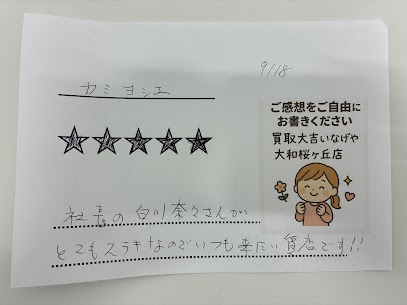 9/18
カミ ヨシエ
ご感想をご自由に
お書きください
買取大吉いなげや
大和桜ヶ丘店
社長の白川奈々さんが
とてもステキなのでいつも来たい質店です!!